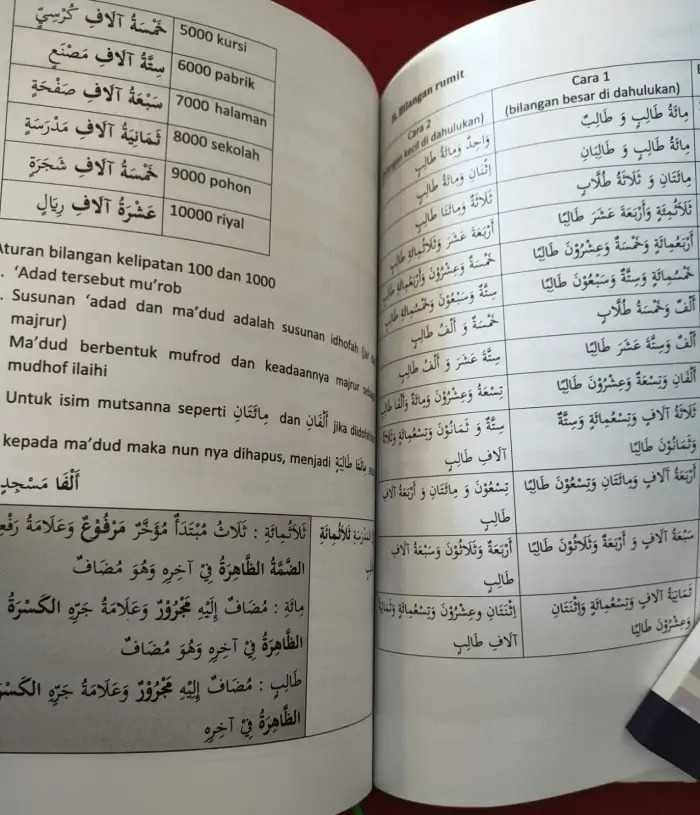 خَمْسَةُ آلَافِ كُرْسِيٍّ 5000 kursi
سِتَّةُ آلَافِ مَصْنَعٍ 6000 pabrik
سَبْعَةُ آلَافِ صَفْحَةٍ 7000 halaman
ثَمَانِيَةُ آلَافِ مَدْرَسَةٍ 8000 sekolah
خَمْسَةُ آلَافِ شَجَرَةٍ 9000 pohon
عَشْرَةُ آلَافِ رِيَالٍ 10000 riyal
Aturan bilangan kelipatan 100 dan 1000
. 'Adad tersebut mu'rob
. Susunan 'adad dan ma'dud adalah susunan idhofah
majrur)
Ma'dud berbentuk mufrod dan keadaannya majrur sebagai
mudhof ilaihi
Untuk isim mutsanna seperti مِائَتَانِ dan أَلْفَانِ jika
kepada ma'dud maka nun nya dihapus, menjadi مِائَتَا طَالِبَةٍ
أَلْفَا مَسْجِدٍ
ثَلَاثُمِائَةِ
ثَلَاثُمِائَةِ : ثَلَاثُ مُبْتَدَأٌ مُؤَخَّرٌ مَرْفُوْعٌ وَعَلَامَةُ
الضَّمَّةُ الظَّاهِرَةُ فِيْ آخِرِهِ وَهُوَ مُضَافٌ
مِائَةِ : مُضَافٌ إِلَيْهِ مَجْرُوْرٌ وَعَلَامَةُ جَرِّهِ الكَسْرَةُ
الظَّاهِرَةُ فِيْ آخِرِهِ وَهُوَ مُضَافٌ
طَالِبٍ : مُضَافٌ إِلَيْهِ مَجْرُوْرٌ وَعَلَامَةُ جَرِّهِ
الظَّاهِرَةُ فِيْ آخِرِهِ
Bilangan rumit
Cara 1
(bilangan besar di dahulukan)
Cara 2
kecil di dahulukan)
مِائَةُ طَالِبٍ وَ طَالِبٌ
وَاحِدٌ وَمِائَةُ طَالِبٍ
مِائَةُ طَالِبٍ وَ طَالِبَانِ
اِثْنَانِ وَمِائَةُ طَالِبٍ
مِائَتَانِ وَ ثَلَاثَةُ طُلَّابٍ
ثَلَاثَةٌ وَمِائَتَا طَالِبٍ
ثَلَاثُمِئَةٍ وَأَرْبَعَةَ عَشَرَ طَالِبًا
أَرْبَعَةَ عَشَرَ وَثَلَاثُمِائَةِ طَالِبٍ
أَرْبَعُمِائَةٍ وَخَمْسَةٌ وَعِشْرُوْنَ طَالِبًا
خَمْسَةٌ وَعِشْرُوْنَ وَأَرْبَعُمِائَةِ طَالِبٍ
خَمْسُمِائَةٍ وَسِتَّةٌ وَسَبْعُوْنَ طَالِبًا
سِتَّةٌ وَسَبْعُوْنَ وَخَمْسُمِائَةِ طَالِبٍ
أَلْفٌ وَخَمْسَةُ طُلَّابٍ
خَمْسَةٌ وَ أَلْفُ طَالِبٍ
أَلْفٌ وَسِتَّةَ عَشَرَ طَالِبًا
سِتَّةَ عَشَرَ وَ أَلْفُ طَالِبٍ
أَلْفَانِ وَتِسْعَةٌ وَعِشْرُوْنَ طَالِبًا
تِسْعَةٌ وَعِشْرُوْنَ وَمِائَةٌ وَأَلْفَا طَالِبٍ
ثَلَاثَةُ آلَافٍ وَتِسْعُمِائَةٍ وَسِتَّةٌ
وَثَمَانُوْنَ طَالِبًا
سِتَّةٌ وَ ثَمَانُوْنَ وَتِسْعُمِائَةٍ وَثَلَاثَةُ
آلَافِ طَالِبٍ
أَرْبَعَةُ آلَافٍ وَمِائَتَانِ وَتِسْعُوْنَ طَالِبًا
تِسْعُوْنَ وَ مِائَتَانِ وَ أَرْبَعَةُ آلَافِ
طَالِبٍ
سَبْعَةُ آلَافٍ وَ أَرْبَعَةٌ وَثَلَاثُوْنَ طَالِبًا
أَرْبَعَةٌ وَثَلَاثُوْنَ وَسَبْعَةُ آلَافِ
طَالِبٍ
ثَمَانِيَةُ آلَافٍ وَتِسْعُمِائَةٍ وَاِثْنَتَانِ
وَعِشْرُوْنَ طَالِبًا
اِثْنَتَانِ وعِشْرُوْنَ وَتِسْعُمِائَةٍ وَثَمَانِيَةُ
آلَافِ طَالِبٍ